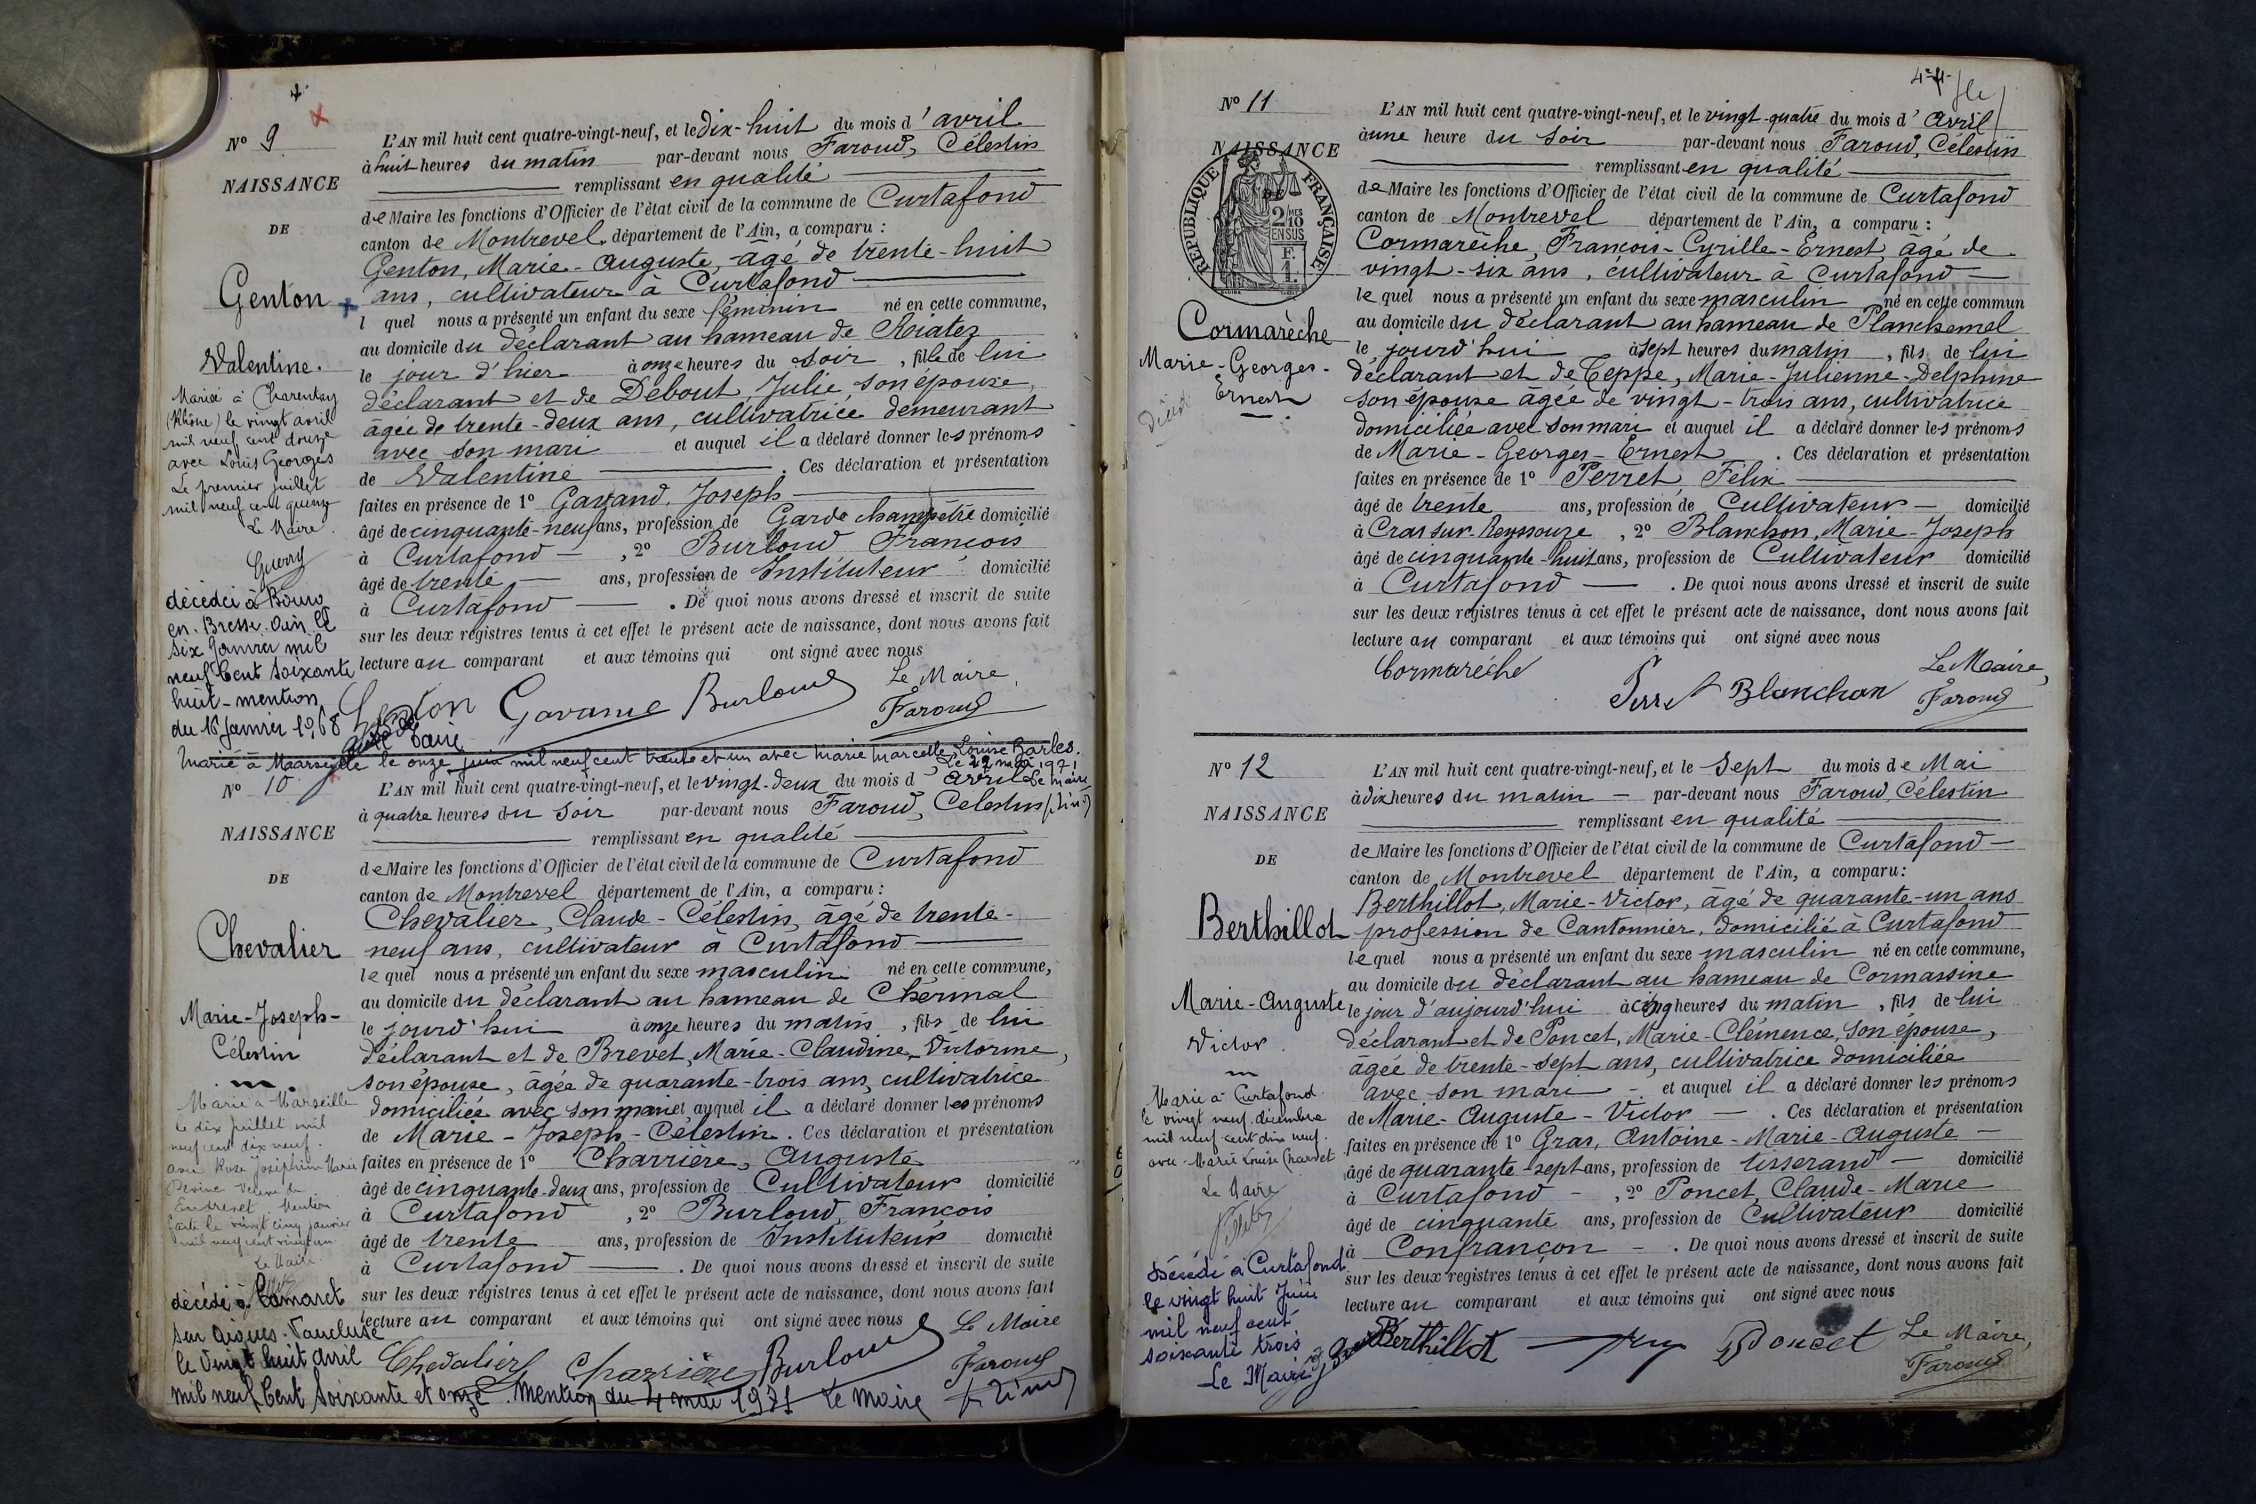 4
N° 9
NAISSANCE
DE
Genton
Valentine.
Mariée à Charentay
(Rhône) le vingt avril
mil neuf cent douze
avec Louis Georges
Le premier juillet
mil neuf cent quinze
Le Maire
décédée à Bourg
en Bresse Ain le
six Janvier mil
neuf Cent soixante
huit - mention
du 16 Janvier 1968
L'AN mil huit cent quatre-vingt-neuf, et le dix-huit du mois d'avril
à huit heures du matin par-devant nous Faroud, Célestin
remplissant en qualité
de Maire les fonctions d'Officier de l'état civil de la commune de Curtafond
canton de Montrevel, département de l'Ain, a comparu :
Genton, Marie-Auguste, âgé de trente-huit
ans, cultivateur à Curtafond
l quel nous a présenté un enfant du sexe féminin né en cette commune,
au domicile du déclarant au hameau de
le jour d'hier à onze heures du soir, fille de lui
déclarant et de Debout, Julie, son épouse,
âgée de trente-deux ans, cultivatrice demeurant
avec son mari et auquel il a déclaré donner les prénoms
de Valentine. Ces déclaration et présentation
faites en présence de 1° Gavand, Joseph
âgé de cinquante-neuf ans, profession de Garde champêtre domicilié
à Curtafond, 2° Burloud François
âgé de trente ans, profession de Instituteur domicilié
à Curtafond. De quoi nous avons dressé et inscrit de suite
sur les deux registres tenus à cet effet le présent acte de naissance, dont nous avons fait
lecture au comparant et aux témoins qui ont signé avec nous
Genton Gavand Burloud Le Maire,
Faroud
Marié à Marseille le onze juin mil neuf cent trente et un avec Marie Marcelle Louise Barles.
Le maire
N° 10
NAISSANCE
DE
Chevalier
Marie-Joseph-
Célestin
Marié à Marseille
le dix juillet mil
neuf cent dix neuf.
avec Rose Joséphine Marie
Mention
faite le vingt cinq janvier
mil neuf cent vingt un
Le Maire
décédé à Camaret
sur Aigues - Vaucluse
le vingt huit avril
mil neuf Cent soixante et onze. Mention du 4 mai 1971 Le Maire
L'AN mil huit cent quatre-vingt-neuf, et le vingt-deux du mois d'avril
à quatre heures du soir par-devant nous Faroud, Célestin
remplissant en qualité
de Maire les fonctions d'Officier de l'état civil de la commune de Curtafond
canton de Montrevel département de l'Ain, a comparu :
Chevalier, Claude-Célestin, âgé de trente-
neuf ans, cultivateur à Curtafond
lequel nous a présenté un enfant du sexe masculin né en cette commune,
au domicile du déclarant au hameau de Chermal
le jourd'hui à onze heures du matin, fils de lui
déclarant et de Brevet, Marie-Claudine-Victorine,
son épouse, âgée de quarante-trois ans, cultivatrice
domiciliée avec son mari et auquel il a déclaré donner les prénoms
de Marie-Joseph-Célestin. Ces déclaration et présentation
faites en présence de 1° Charriere, Auguste
âgé de cinquante-deux ans, profession de Cultivateur domicilié
à Curtafond, 2° Burloud, François
âgé de trente ans, profession de Instituteur domicilié
à Curtafond. De quoi nous avons dressé et inscrit de suite
sur les deux registres tenus à cet effet le présent acte de naissance, dont nous avons fait
lecture au comparant et aux témoins qui ont signé avec nous Le Maire
Chevalier Charrière Burloud Faroud
N° 11
NAISSANCE
DE
RÉPUBLIQUE FRANÇAISE
2/10 EN SUS
Cormarèche
Marie-Georges-
Ernest
L'AN mil huit cent quatre-vingt-neuf, et le vingt-quatre du mois d'avril
à une heure du soir par-devant nous Faroud, Célestin
remplissant en qualité
de Maire les fonctions d'Officier de l'état civil de la commune de Curtafond
canton de Montrevel département de l'Ain, a comparu :
Cormarèche, François-Cyrille-Ernest, âgé de
vingt-six ans, cultivateur à Curtafond
lequel nous a présenté un enfant du sexe masculin né en cette commun
au domicile du déclarant au hameau de Planchemel
le jourd'hui à sept heures du matin, fils de lui
déclarant et de Teppe, Marie-Julienne-Delphine
son épouse âgée de vingt-trois ans, cultivatrice
domiciliée avec son mari et auquel il a déclaré donner les prénoms
de Marie-Georges-Ernest. Ces déclaration et présentation
faites en présence de 1° Perret, Félix
âgé de trente ans, profession de Cultivateur domicilié
à Cras sur Reyssouze, 2° Blanchon, Marie-Joseph
âgé de cinquante-huit ans, profession de Cultivateur domicilié
à Curtafond. De quoi nous avons dressé et inscrit de suite
sur les deux registres tenus à cet effet le présent acte de naissance, dont nous avons fait
lecture au comparant et aux témoins qui ont signé avec nous
Cormarèche Perret Blanchon Le Maire,
Faroud
N° 12
NAISSANCE
DE
Berthillot
Marie-Auguste
Victor
Marié à Curtafond
le vingt neuf décembre
mil neuf cent dix neuf.
avec Marie Louise Charvet
Le Maire
Décédé à Curtafond
le vingt huit Juin
mil neuf cent
soixante trois
Le Maire
L'AN mil huit cent quatre-vingt-neuf, et le Sept du mois de Mai
à dix heures du matin par-devant nous Faroud, Célestin
remplissant en qualité
de Maire les fonctions d'Officier de l'état civil de la commune de Curtafond
canton de Montrevel département de l'Ain, a comparu :
Berthillot, Marie-Victor, âgé de quarante-un ans
profession de Cantonnier, domicilié à Curtafond
lequel nous a présenté un enfant du sexe masculin né en cette commune,
au domicile du déclarant au hameau de Cormassine
le jour d'aujourd'hui à cinq heures du matin, fils de lui
déclarant et de Poncet, Marie-Clémence, son épouse,
âgée de trente-sept ans, cultivatrice domiciliée
avec son mari et auquel il a déclaré donner les prénoms
de Marie-Auguste-Victor. Ces déclaration et présentation
faites en présence de 1° Gras, Antoine-Marie-Auguste
âgé de quarante-sept ans, profession de tisserand domicilié
à Curtafond, 2° Poncet, Claude-Marie
âgé de cinquante ans, profession de Cultivateur domicilié
à Confrançon. De quoi nous avons dressé et inscrit de suite
sur les deux registres tenus à cet effet le présent acte de naissance, dont nous avons fait
lecture au comparant et aux témoins qui ont signé avec nous
Berthillot Poncet Le Maire,
Faroud